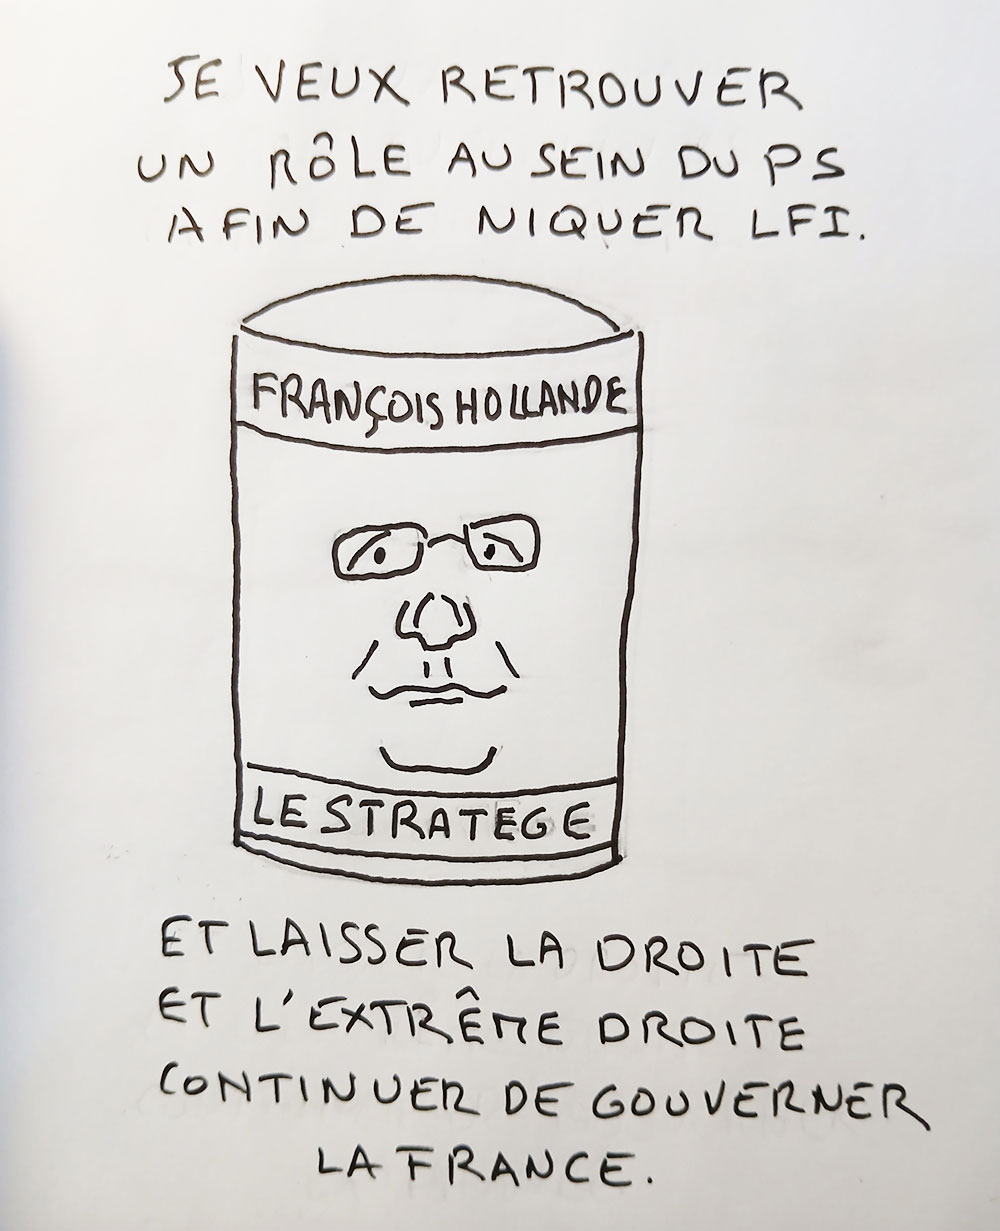 JE VEUX RETROUVER
UN RÔLE AU SEIN DU PS
AFIN DE NIQUER LFI.
FRANÇOIS HOLLANDE
LE STRATEGE
ET LAISSER LA DROITE
ET L'EXTRÊME DROITE
CONTINUER DE GOUVERNER
LA FRANCE.